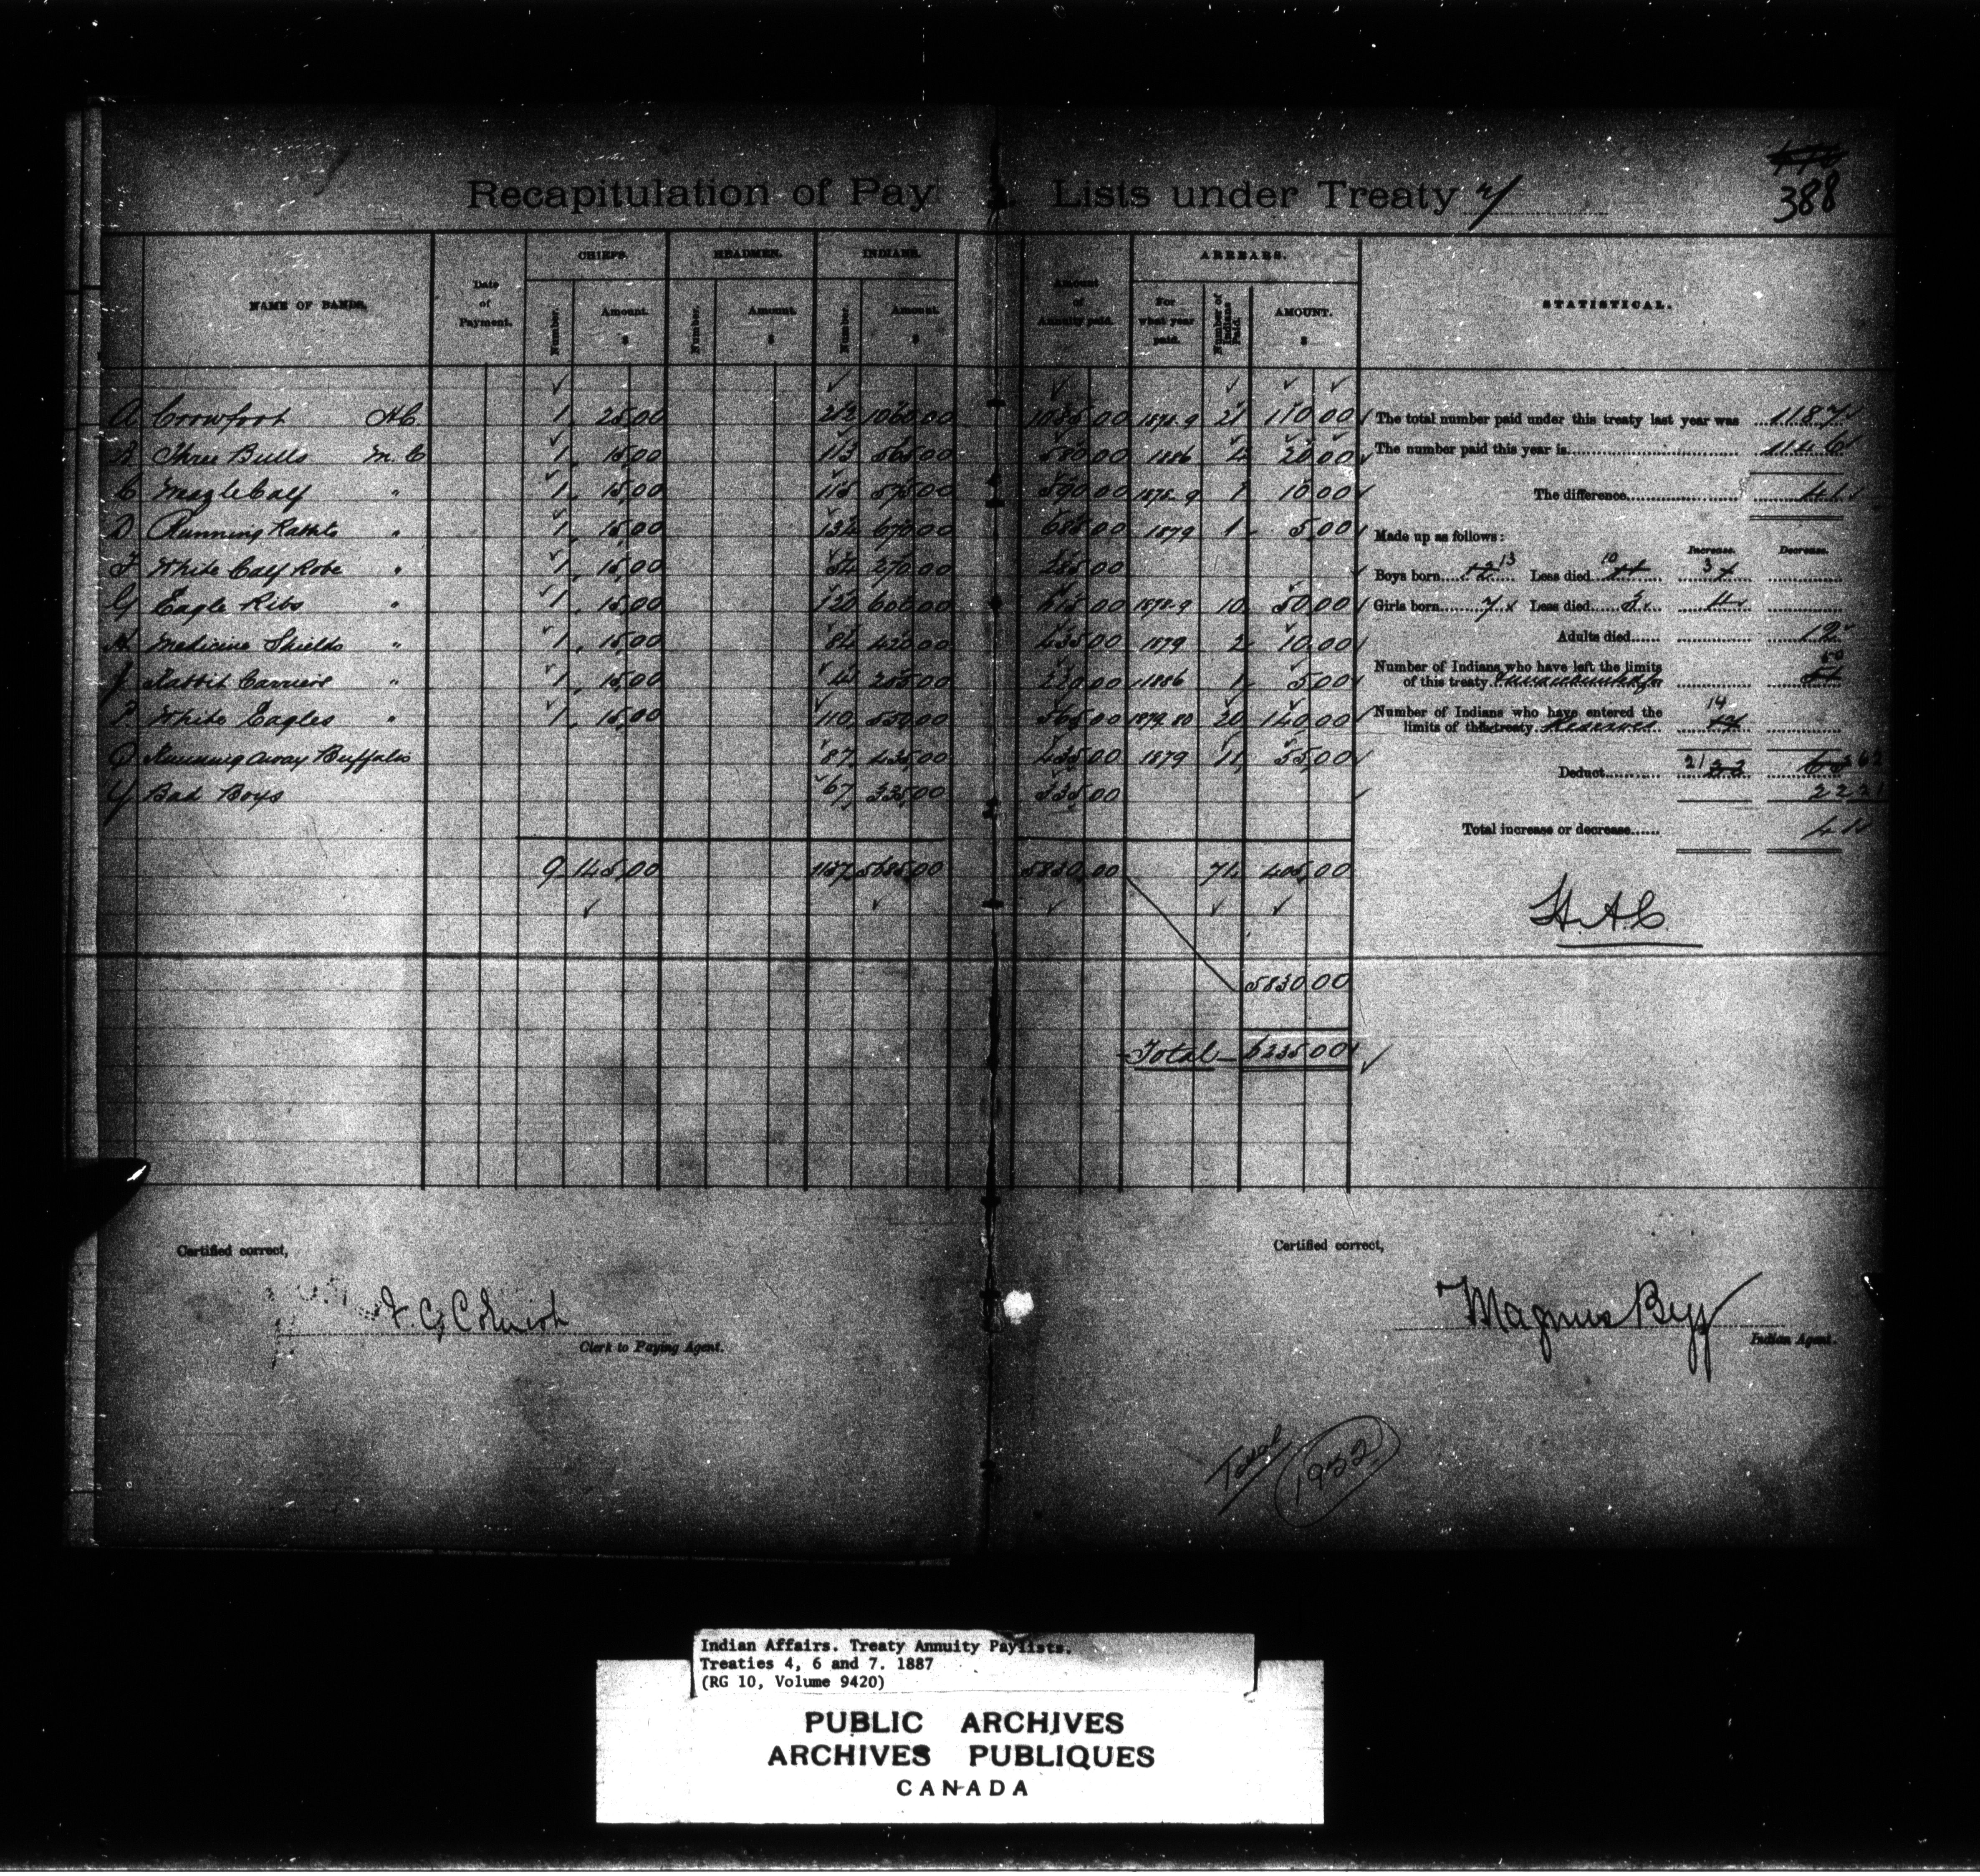 388
Recapitulation of Pay Lists under Treaty 7
NAME OF BANDS.
Date of Payment.
CHIEFS.
Number.
Amount. $
HEADMEN.
Number.
Amount. $
INDIANS.
Number.
Amount. $
Amount of Annuity paid.
ARREARS.
For what year paid.
Number of Indians Paid.
AMOUNT. $
STATISTICAL.
A Crowfoot H.C. 1 25.00 212 1060.00 1085.00 1878-9 21 110.00
B Three Bulls M.C 1 15.00 113 565.00 580.00 1886 4 20.00
C Eagle Calf " 1 15.00 115 575.00 590.00 1878-9 1 10.00
D Running Rabbits " 1 15.00 134 670.00 685.00 1879 1 5.00
F White Calf Robe " 1 15.00 54 270.00 285.00
G Eagle Ribs " 1 15.00 120 600.00 615.00 1878-9 10 50.00
H Medicine Shields " 1 15.00 84 420.00 435.00 1879 2 10.00
J Rabbit Carriers " 1 15.00 41 205.00 220.00 1886 1 5.00
P White Eagles " 1 15.00 110 550.00 565.00 1879.80 20 140.00
Q Running away Buffalo 87 435.00 435.00 1879 11 55.00
Y Bad Boys 67 335.00 335.00
9 145.00 1137 5685.00 5830.00 71 405.00
5830.00
Total 6235.00
The total number paid under this treaty last year was 1187
The number paid this year is 1146
The difference 41
Made up as follows:
Increase. Decrease.
Boys born 13 Less died 10 3
Girls born 7 Less died 3 4
Adults died 12
Number of Indians who have left the limits
of this treaty 50
Number of Indians who have entered the
limits of this treaty Reserves 14
Deduct 21 62
21
Total increase or decrease 41
H.A.C.
Certified correct,
Clerk to Paying Agent.
Certified correct,
Magnus Begg
Indian Agent.
Total 1932
Indian Affairs. Treaty Annuity Paylists.
Treaties 4, 6 and 7. 1887
(RG 10, Volume 9420)
PUBLIC ARCHIVES
ARCHIVES PUBLIQUES
CANADA